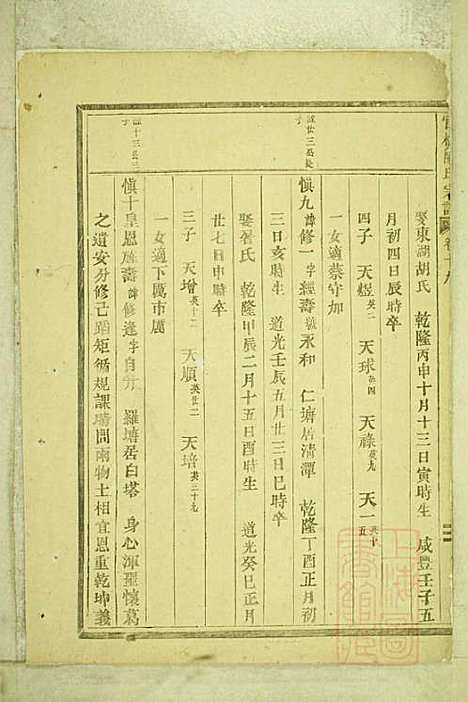 娶東湖胡氏 乾隆丙申十月十三日寅時生 咸豐壬子五
月初四日辰時卒
四子 天煜英二 天球英四 天祿英九 天一英十五
一女適蔡守加
慎九諱修一字經壽號永和 仁塘居清潭 乾隆丁酉正月初
三日亥時生 道光壬辰五月廿三日巳時卒
娶 氏 乾隆甲辰二月十五日酉時生 道光癸巳正月
廿七日申時卒
三子 天增英十二 天順英廿二 天培英三十九
一女適下厲市厲
慎十皇恩 壽諱修逢字自升 羅塘居白塔 身心渾羅懷葛
之遺安分修己蹈矩循規課 間雨物土相宜恩重乾坤義